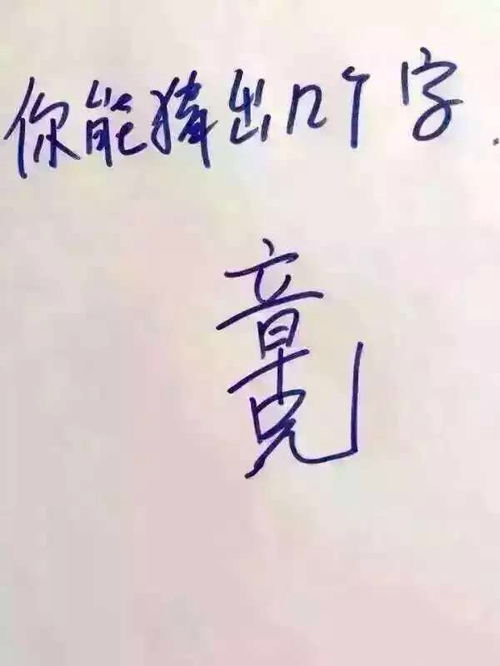 你能猜出几个字.